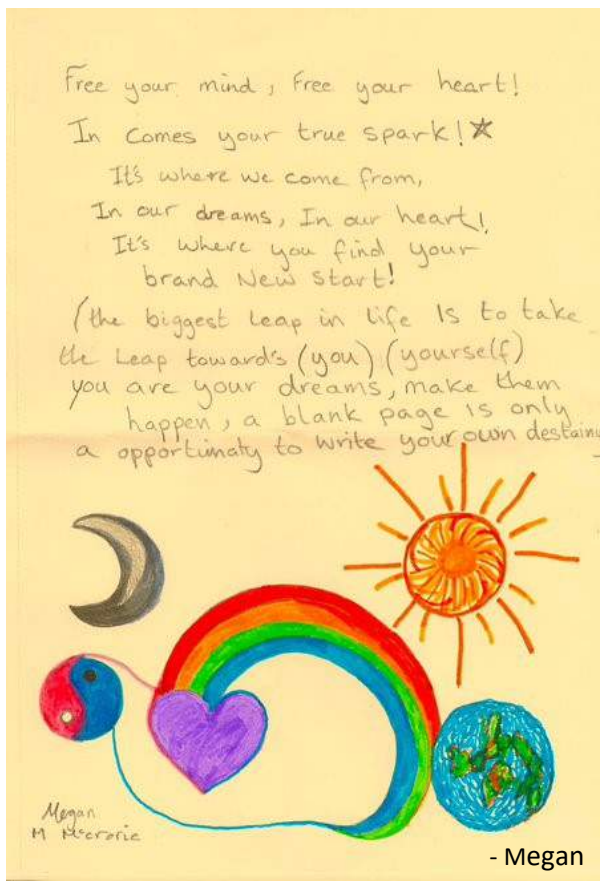 Free your mind, Free your heart!
In comes your true spark!☆
It's where we come from,
In our dreams, In our heart!
It's where you find your
brand New start!
(the biggest leap in life Is to take
the Leap toward's (you) (yourself)
you are your dreams, make them
happen, a blank page is only
a opportunaty to write your own destainy
Megan
M McCrorie
- Megan